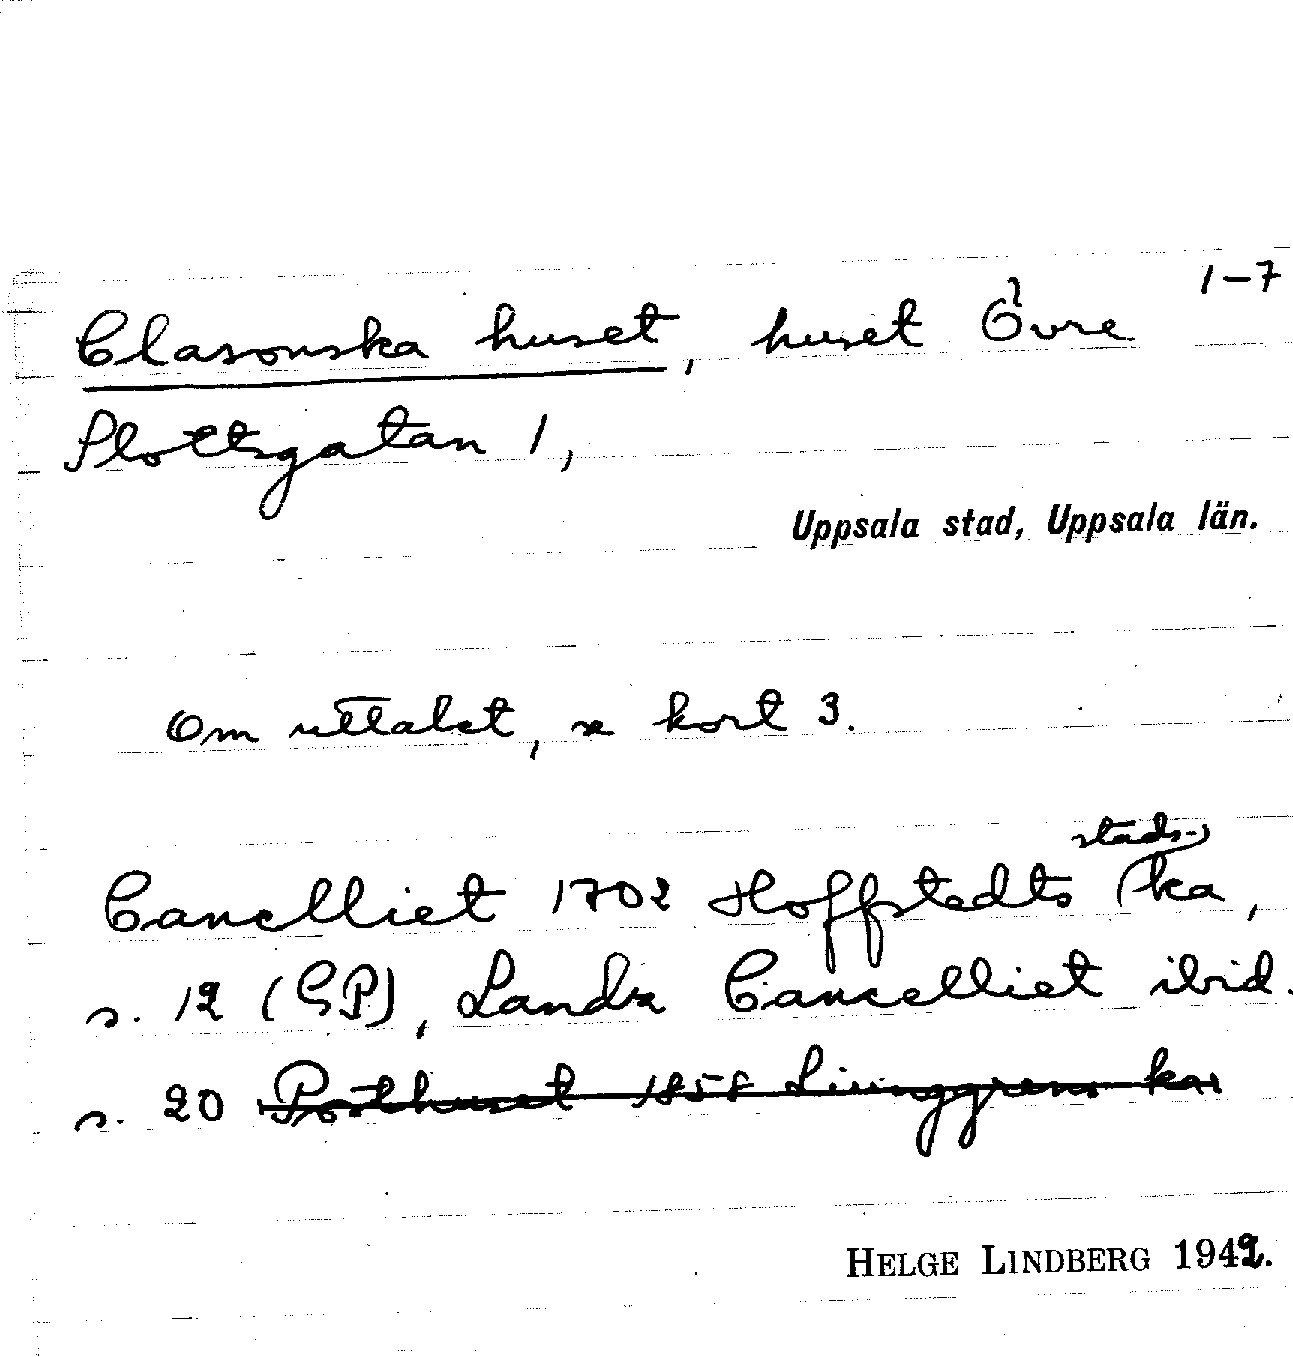 1-7
Clasonska huset, huset Övre
Slottsgatan 1,
Uppsala stad, Uppsala län.
Om uttalet, se kort 3.
stads-
Cancelliet 1702 Hoffstedts ka,
s. 12 (GP), Landz Cancelliet ibid.
s. 20 Posthuset 1858 Ljunggrens ka
HELGE LINDBERG 1942.